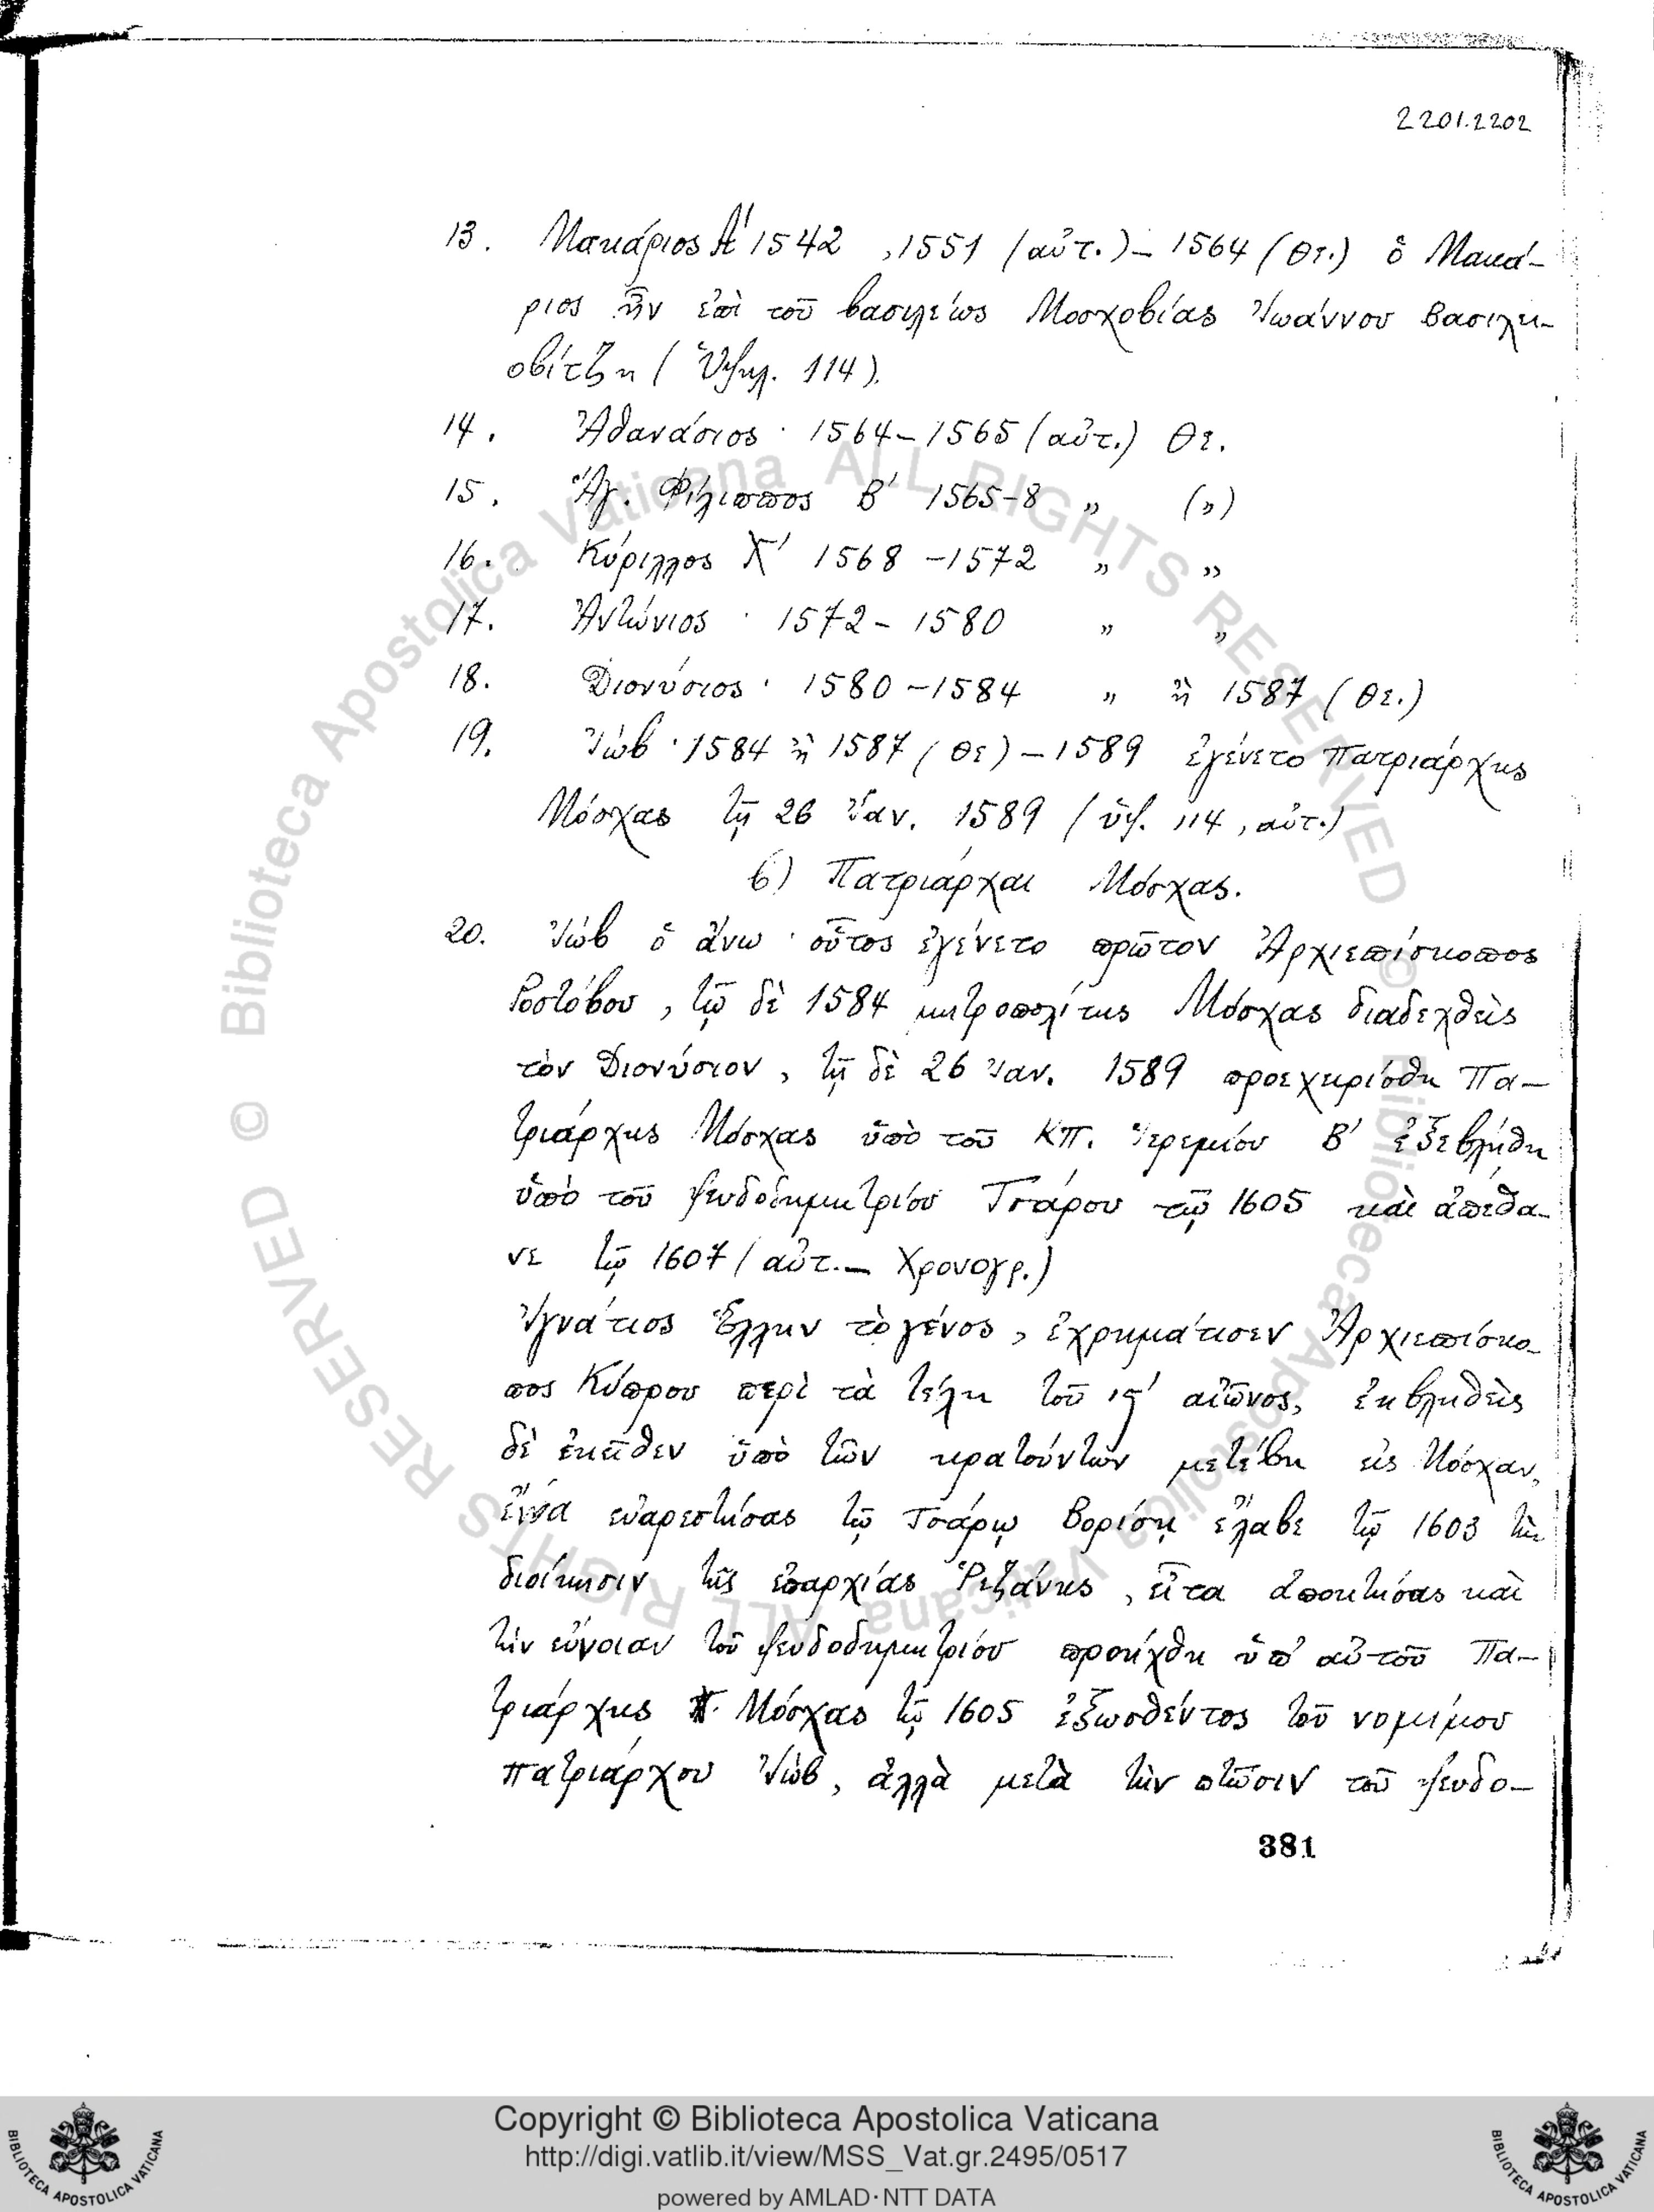 2201.2202
13. Μακάριος Α' 1542 , 1551 (αὐτ.) – 1564 (Θε.) ὁ Μακά-
ριος ἦν ἐπὶ τοῦ βασιλέως Μοσχοβίας Ἰωάννου Βασιλει-
οβίτζη (Ὑψηλ. 114).
14. Ἀθανάσιος · 1564–1565 (αὐτ.) Θε.
15. Ἅγ. Φίλιππος Β' 1565–8 " (")
16. Κύριλλος 1568 –1572 " "
17. Ἀντώνιος · 1572 – 1580 " "
18. Διονύσιος · 1580 –1584 " ἢ 1587 (Θε.)
19. Ἰώβ · 1584 ἢ 1587 (Θε) – 1589 ἐγένετο Πατριάρχης
Μόσχας τῇ 26 Ἰαν. 1589 (ὑψ. 114, αὐτ.)
β) Πατριάρχαι Μόσχας.
20. Ἰώβ ὁ ἄνω · οὗτος ἐγένετο πρῶτον Ἀρχιεπίσκοπος
Ροστόβου, τῷ δὲ 1584 μητροπολίτης Μόσχας διαδεχθεὶς
τὸν Διονύσιον, τῇ δὲ 26 Ἰαν. 1589 προεχειρίσθη Πα-
τριάρχης Μόσχας ὑπὸ τοῦ ΚΠ. Ἱερεμίου Β' ἐξεβλήθη
ὑπὸ τοῦ ψευδοδημητρίου Τσάρου τῷ 1605 καὶ ἀπέθα-
νε τῷ 1607 (αὐτ. – Χρονογρ.)
Ἰγνάτιος Ἕλλην τὸ γένος, ἐχρημάτισεν Ἀρχιεπίσκο-
πος Κύπρου περὶ τὰ τέλη τοῦ ιϛ' αἰῶνος, ἐκβληθεὶς
δὲ ἐκεῖθεν ὑπὸ τῶν κρατούντων μετέβη εἰς Μόσχαν,
ἔνθα εὐαρεστήσας τῷ Τσάρῳ Βορίσῃ ἔλαβε τῷ 1603 τὴν
διοίκησιν τῆς ἐπαρχίας Ῥεζάνης, εἶτα ἀποκτήσας καὶ
τὴν εὔνοιαν τοῦ ψευδοδημητρίου προήχθη ὑπ' αὐτοῦ Πα-
τριάρχης Μόσχας τῷ 1605 ἐξωσθέντος τοῦ νομίμου
πατριάρχου Ἰώβ, ἀλλὰ μετὰ τὴν πτῶσιν τοῦ ψευδο-
381
© Biblioteca Apostolica Vaticana ALL RIGHTS RESERVED
© Biblioteca Apostolica Vaticana ALL RIGHTS RESERVED
Copyright © Biblioteca Apostolica Vaticana
http://digi.vatlib.it/view/MSS_Vat.gr.2495/0517
powered by AMLAD·NTT DATA
BIBLIOTECA APOSTOLICA VATICANA
BIBLIOTECA APOSTOLICA VATICANA